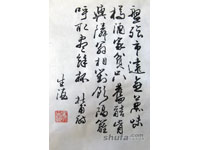 盤飧市遠無兼味
樽酒家貧只舊醅肯
與隣翁相對飲隔籬
呼取盡餘杯 杜甫詩